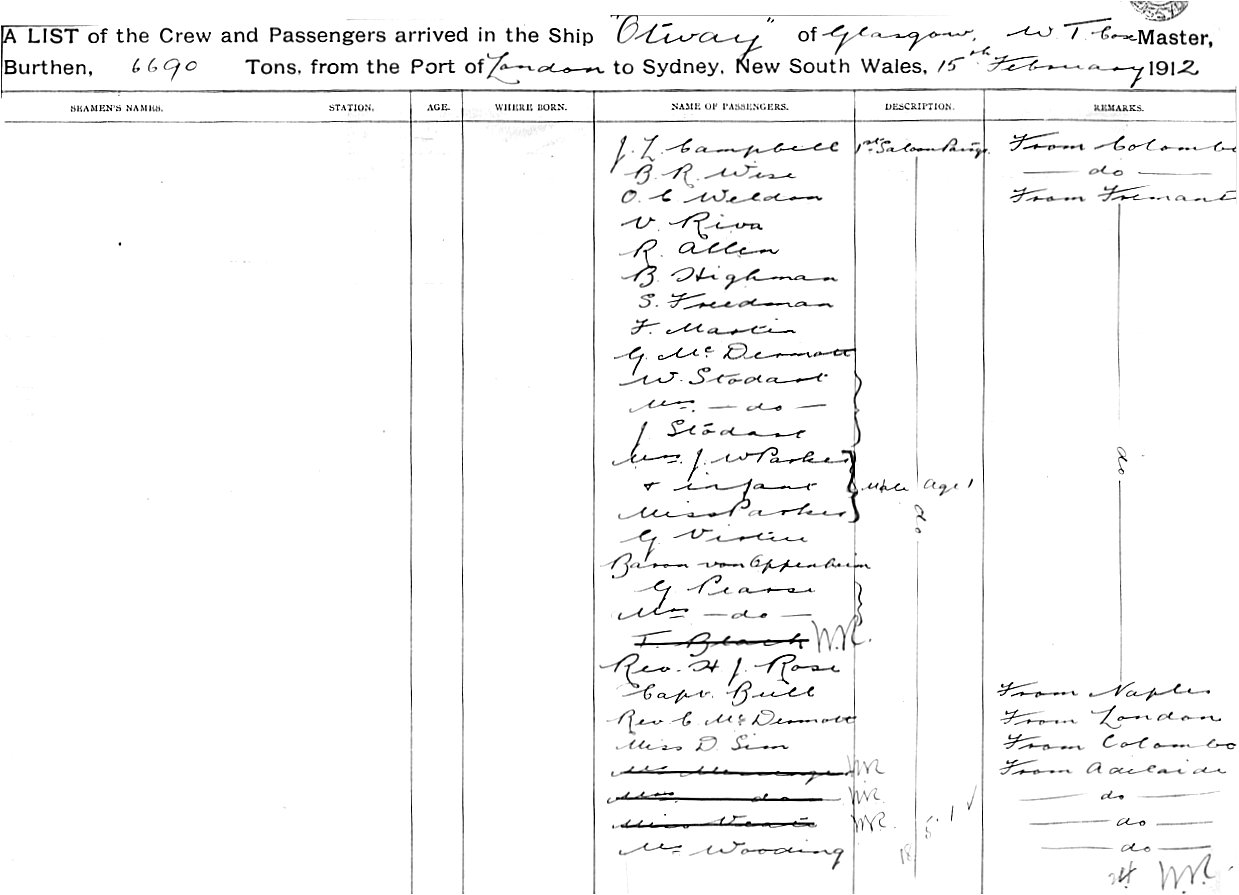 A LIST of the Crew and Passengers arrived in the Ship "Otway" of Glasgow, W T. Cox Master,
Burthen, 6690 Tons, from the Port of London to Sydney, New South Wales, 15th February 1912
SEAMEN'S NAMES. STATION. AGE. WHERE BORN. NAME OF PASSENGERS. DESCRIPTION. REMARKS.
J. L. Campbell 1st Saloon Passgr. From Colombo
B. R. Wise — do —
O. C Weldon From Fremant
V. Riva
R. Allen
B. Highman
S. Freedman
F. Martin
G. Mc Dermott
W. Stodart
Mrs. — do —
J Stodart
Mrs. J. W Parker do
& infant Male Age 1
Miss Parker do
G
Baron von Oppenheim
G Pearse
Mrs — do —
T. Black N.R.
Rev. H J. Rose
Capt. Bull From Naples
Rev C McDermott From London
Miss D. Sim From Colombo
Mr NR From Adelaide
Mrs. do NR — do —
Miss NR. — do —
Mr Wooding 18 5 1 ✓ — do —
24 NR